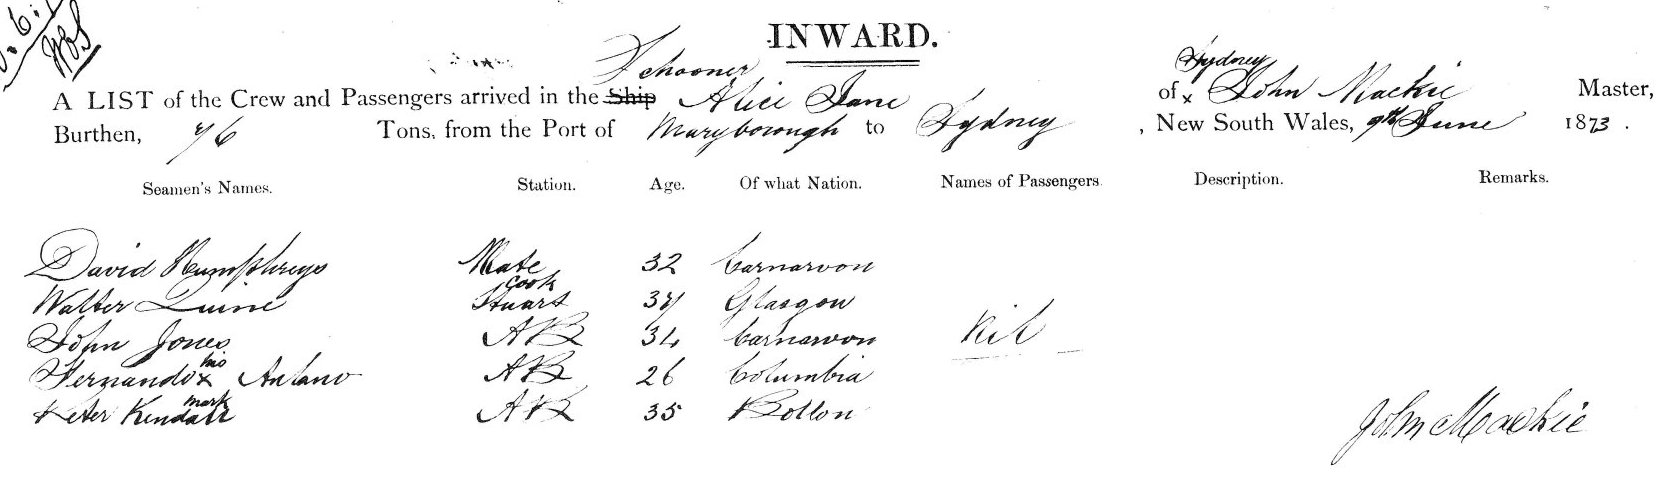 INWARD.
Schooner Sydney
A LIST of the Crew and Passengers arrived in the Ship Alice Jane of x John Mackie Master,
Burthen, 76 Tons, from the Port of Maryborough to Sydney, New South Wales, 9th June 1873.
Seamen's Names. Station. Age. Of what Nation. Names of Passengers Description. Remarks.
David Humphreys Mate 32 Carnarvon
Cook
Walter Quine Stuart 37 Glasgow
John Jones AB 34 Carnarvon Nil
his
Fernando x Antano AB 26 Columbia
mark
Peter Kendall AB 35 Bolton
John Mackie